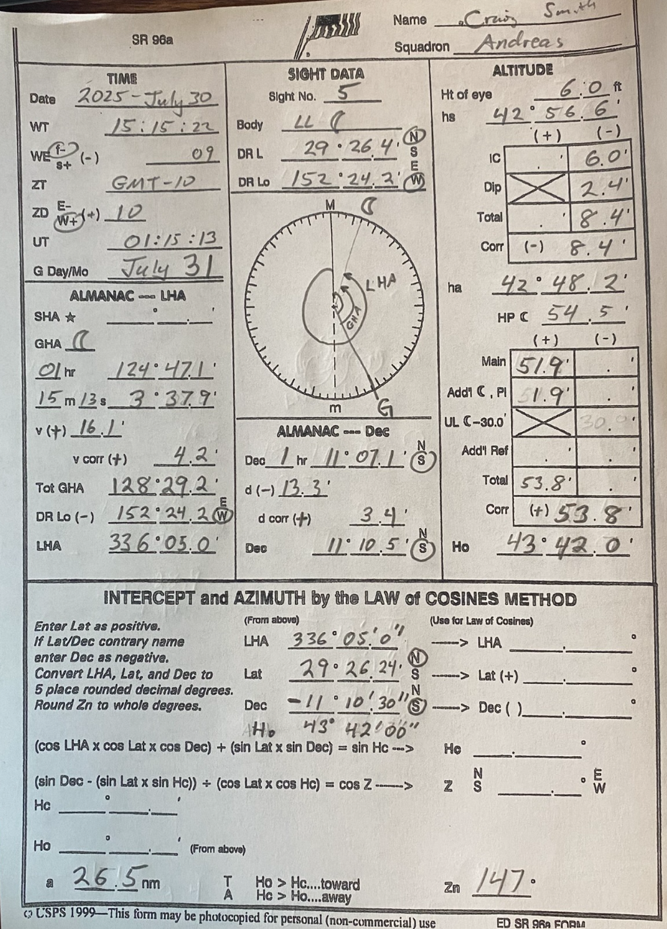 SR 96a
Name Craig Smith
Squadron Andreas
TIME
Date 2025-July 30
WT 15:15:22
WE f- s+ (-) 09
ZT GMT-10
ZD E- W+ (+) 10
UT 01:15:13
G Day/Mo July 31
ALMANAC --- LHA
SHA ☆ ° . '
GHA ☾
01 hr 124° 47.1'
15 m 13 s 3° 37.9'
v (+) 16.1'
v corr (+) 4.2'
Tot GHA 128° 29.2'
DR Lo (-) 152° 24.2 E W
LHA 336° 05.0'
SIGHT DATA
Sight No. 5
Body LL ☾
DR L 29° 26.4' N S
DR Lo 152° 24.2' E W
M ☾
LHA
GHA
m G
ALMANAC --- Dec
Dec 1 hr 11° 07.1' N S
d (-) 13.3'
d corr (+) 3.4'
Dec 11° 10.5' N S
ALTITUDE
Ht of eye 6.0 ft
hs 42° 56.6'
(+) (-)
IC . ' 6.0'
Dip 2.4'
Total . ' 8.4'
Corr (-) 8.4'
ha 42° 48.2'
HP ☾ 54.5'
(+) (-)
Main 51.9' . '
Add'l ☾, Pl 1.9' . '
UL ☾-30.0' 30.0'
Add'l Ref . ' . '
Total 53.8' . '
Corr (+) 53.8'
Ho 43° 42.0'
INTERCEPT and AZIMUTH by the LAW of COSINES METHOD
Enter Lat as positive.
If Lat/Dec contrary name
enter Dec as negative.
Convert LHA, Lat, and Dec to
5 place rounded decimal degrees.
Round Zn to whole degrees.
(From above) (Use for Law of Cosines)
LHA 336° 05' 0" ----> LHA . °
Lat 29° 26 24' N S ----> Lat (+) . °
Dec -11° 10' 30" N S ----> Dec ( ) . °
Ho 43° 42' 00"
(cos LHA x cos Lat x cos Dec) + (sin Lat x sin Dec) = sin Hc ---> Hc . °
(sin Dec - (sin Lat x sin Hc)) ÷ (cos Lat x cos Hc) = cos Z ------> Z N S . ° E W
Hc ° . '
Ho ° . ' (From above)
a 26.5 nm T A Ho > Hc....toward Hc > Ho....away Zn 147°
© USPS 1999—This form may be photocopied for personal (non-commercial) use ED SR 96a FORM